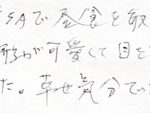 SAで昼食を取
が可愛くて目を
た。幸せ気分で